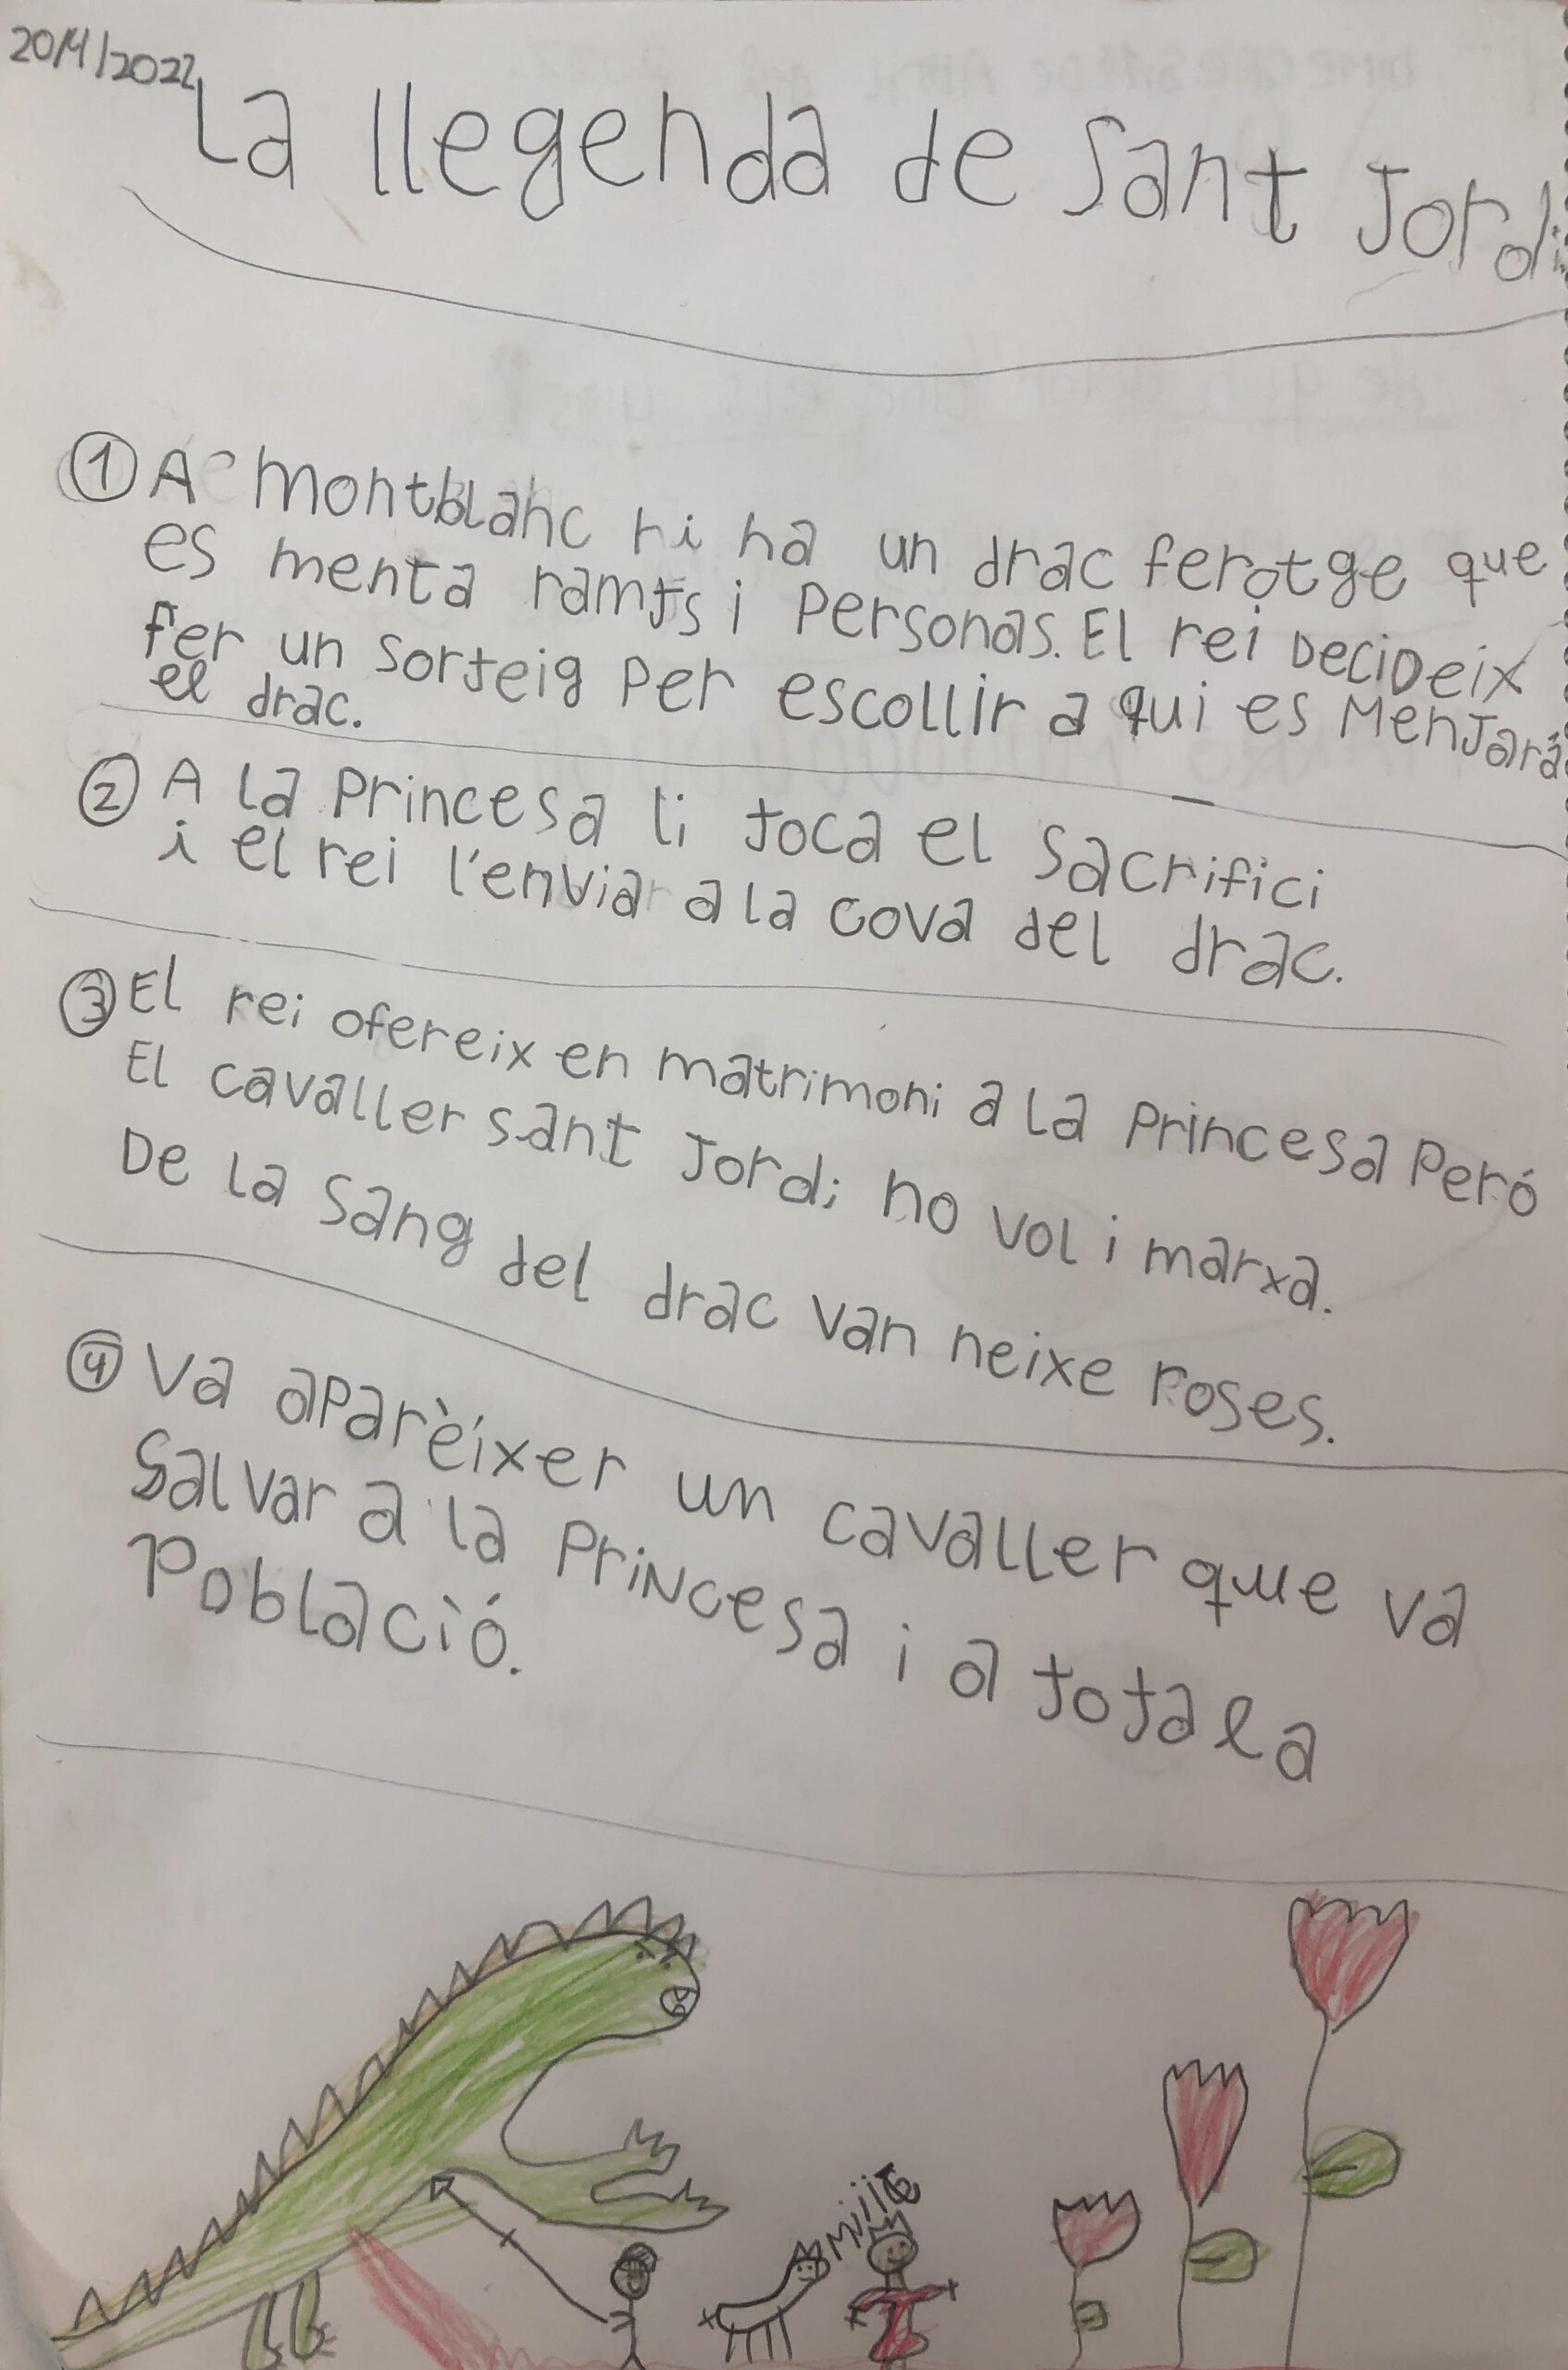 20/4/2022
La llegenda de Sant Jordi
① A Montblanc hi ha un drac ferotge que
es menta ramts i Personas. El rei DeciDeix
fer un sorteig Per escollir a qui es MenJarà
el drac.
② A la Princesa li toca el sacrifici
i el rei l'enviar a la cova del drac.
③ El rei ofereix en matrimoni a la Princesa Peró
El cavaller sant Jordi no vol i marxa.
De la sang del drac van neixe roses.
④ Va aparèixer un cavaller que va
Salvar a la PriNcesa i a tota la
Població.